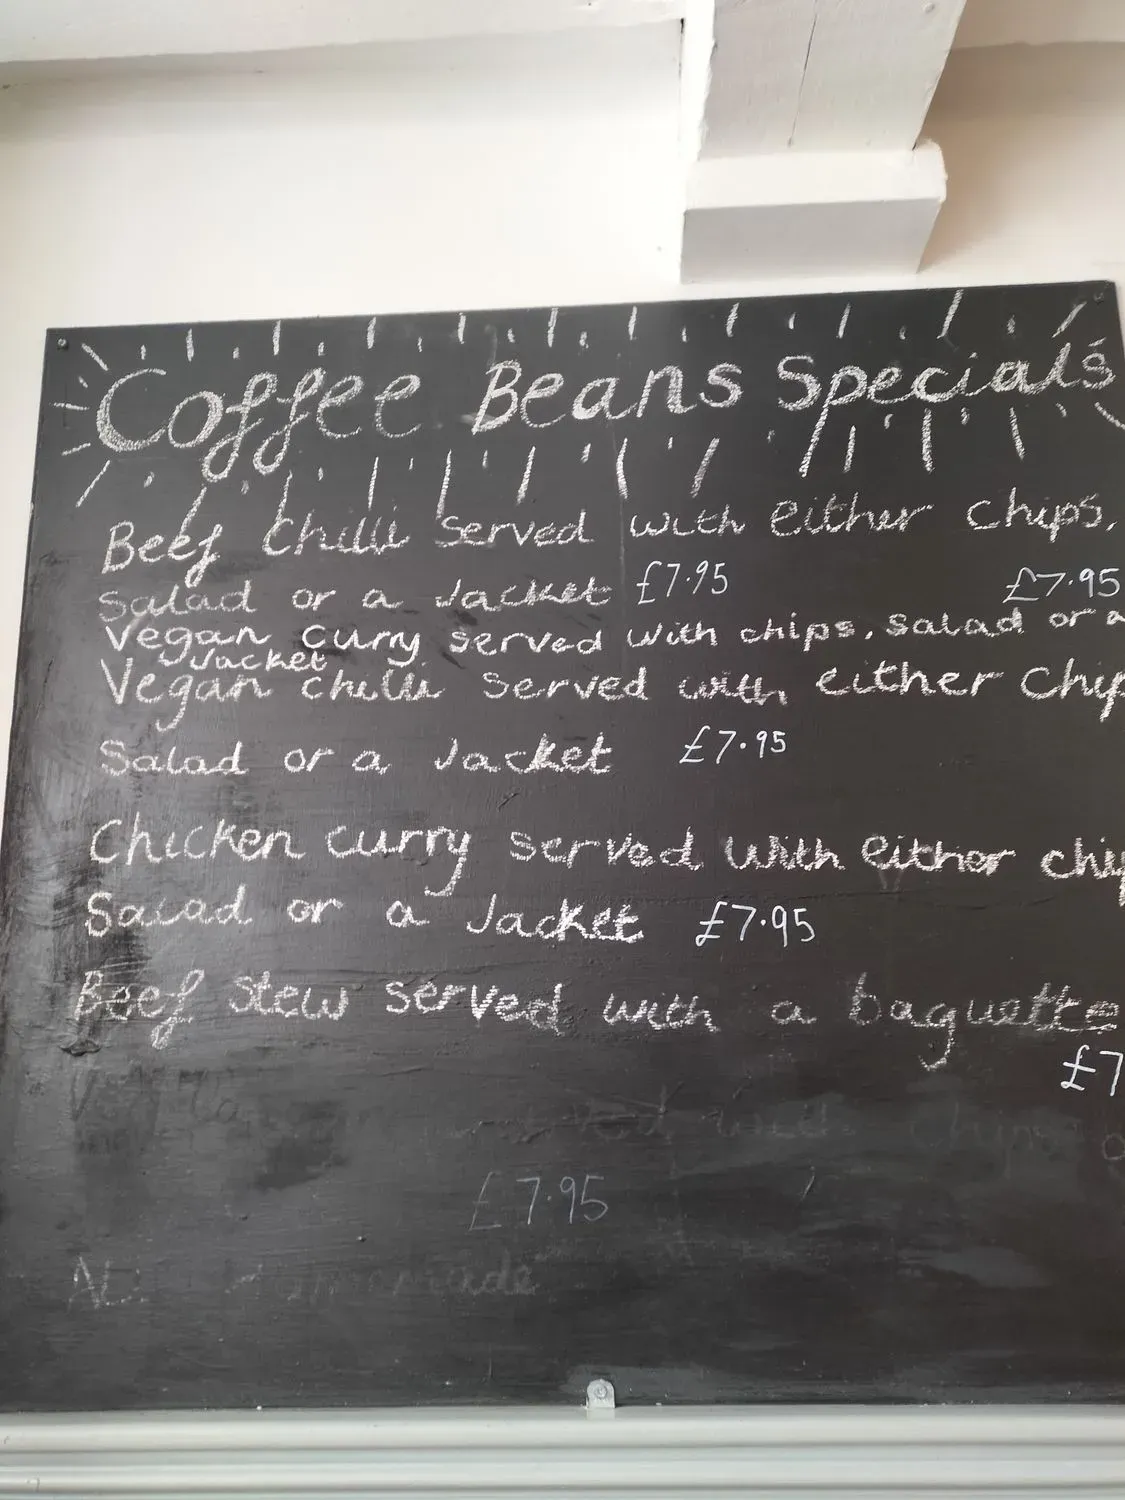 Coffee Beans Specials
Beef chilli served with either chips,
salad or a Jacket £7.95 £7.95
Vegan curry served with chips, salad or a
Jacket
Vegan chilli served with either chip
Salad or a Jacket £7.95
Chicken curry served with either chip
Salad or a Jacket £7.95
Beef stew served with a baguette
£7
with chips
£7.95
Homemade